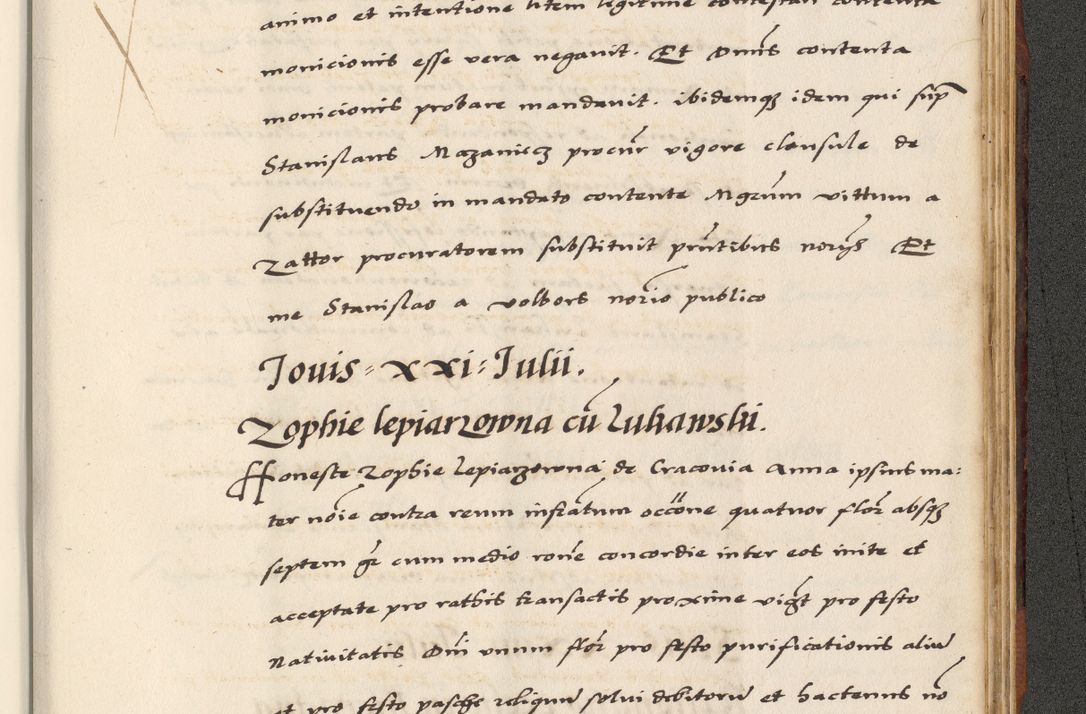 animo et intentione litem legitime contestari contenta
monicionis esse vera negavit. Et Dnus contenta
monicionis probare mandavit. ibidemq idem qui sup
Stanislaus Mazaniecz procur vigore clausule de
substituendo in mandato contente Mgrum vittum a
Zattor procuratorem substituit pntibus noriis Et
me Stanislao a volbors norio publico
Jouis - XXI - Julii.
Zophie lepiarzowna cu Lukawski.
Honeste Zophie Lepiarzowna de Cracovia Anna ipsius ma:
ter noie contra reum infratum occone quatuor flor absq
septem gr cum medio rone concordie inter eos inite et
acceptate pro rathis transactis proxime vigt pro festo
Nativitatis Dni unum flor pro festo purificationis aliu
et pro festo pasche reliquu solui debitoru et hactenus no